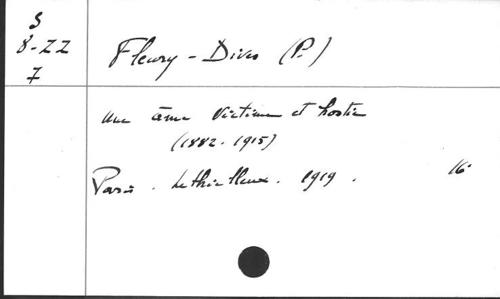 S
8-ZZ
7
Fleury - Dives (P.)
Une âme victime et hostie
(1882-1915)
Paris. Lethielleux. 1919. 16°